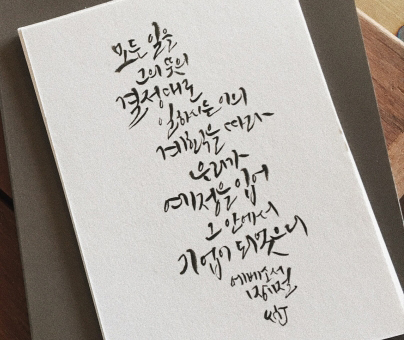 모든 일을
그의 뜻의
결정대로
일하시는 이의
계획을 따라
우리가
예정을 입어
그 안에서
기업이 되었으니
에베소서
1장 11절